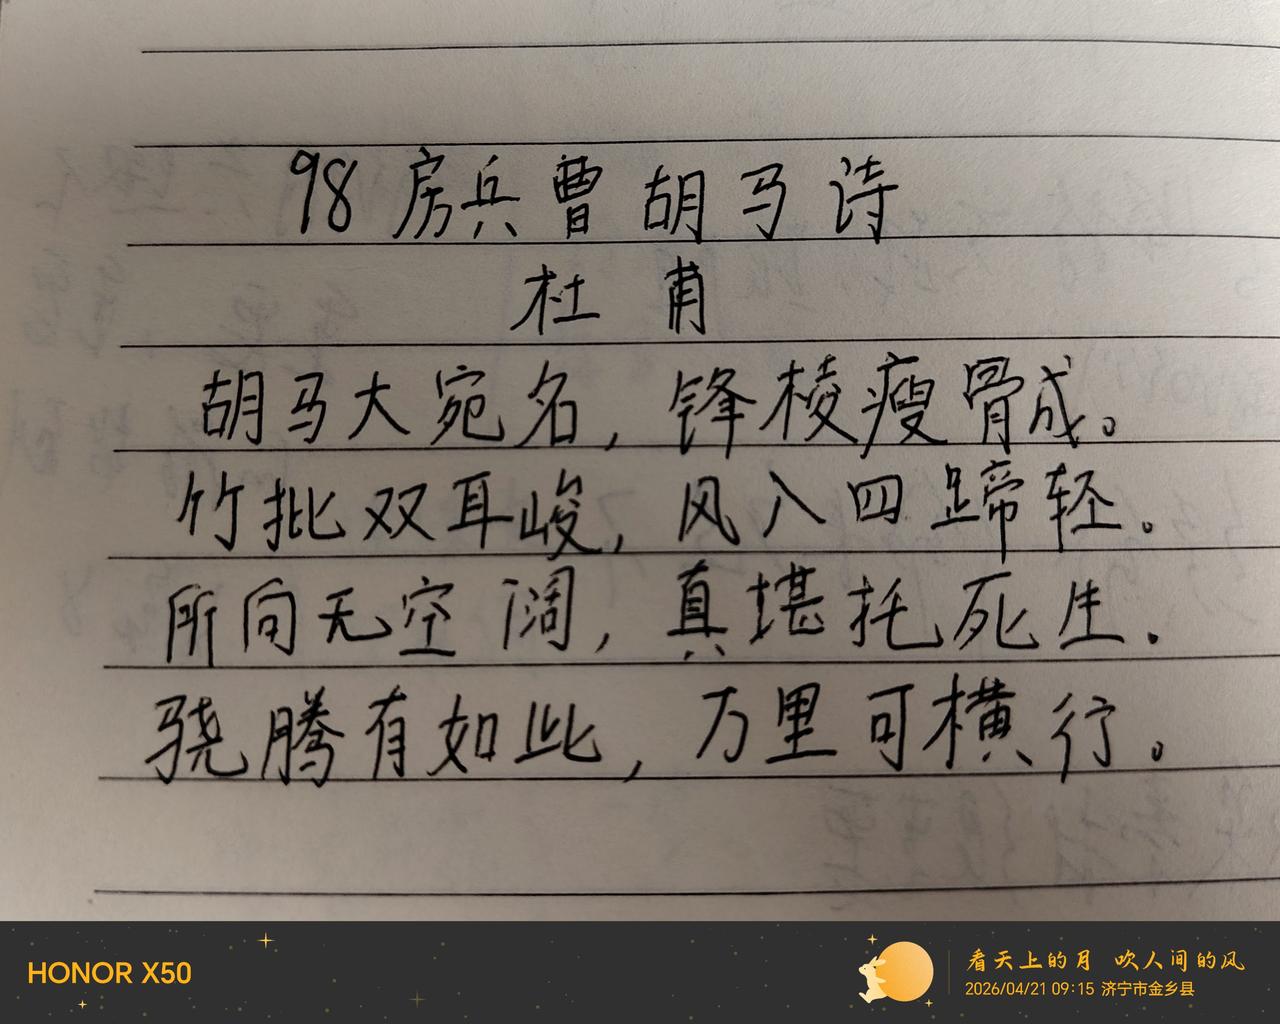 98 房兵曹胡马诗
杜甫
胡马大宛名,锋棱瘦骨成。
竹批双耳峻,风入四蹄轻。
所向无空阔,真堪托死生.
骁腾有如此,万里可横行。
HONOR X50
看天上的月 吹人间的风
2026/04/21 09:15 济宁市金乡县